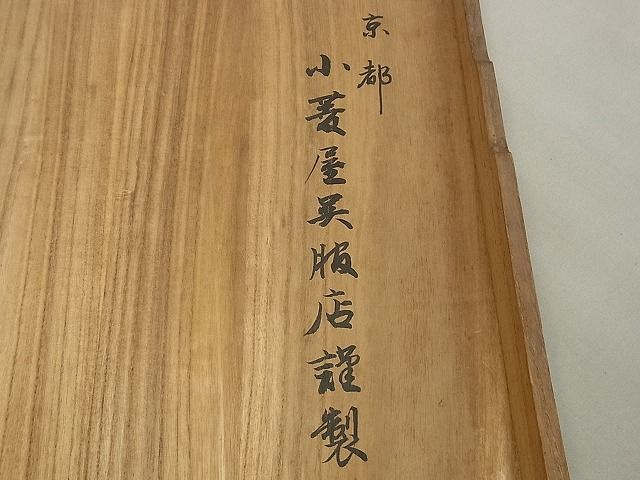 京都
小菱屋呉服店謹製